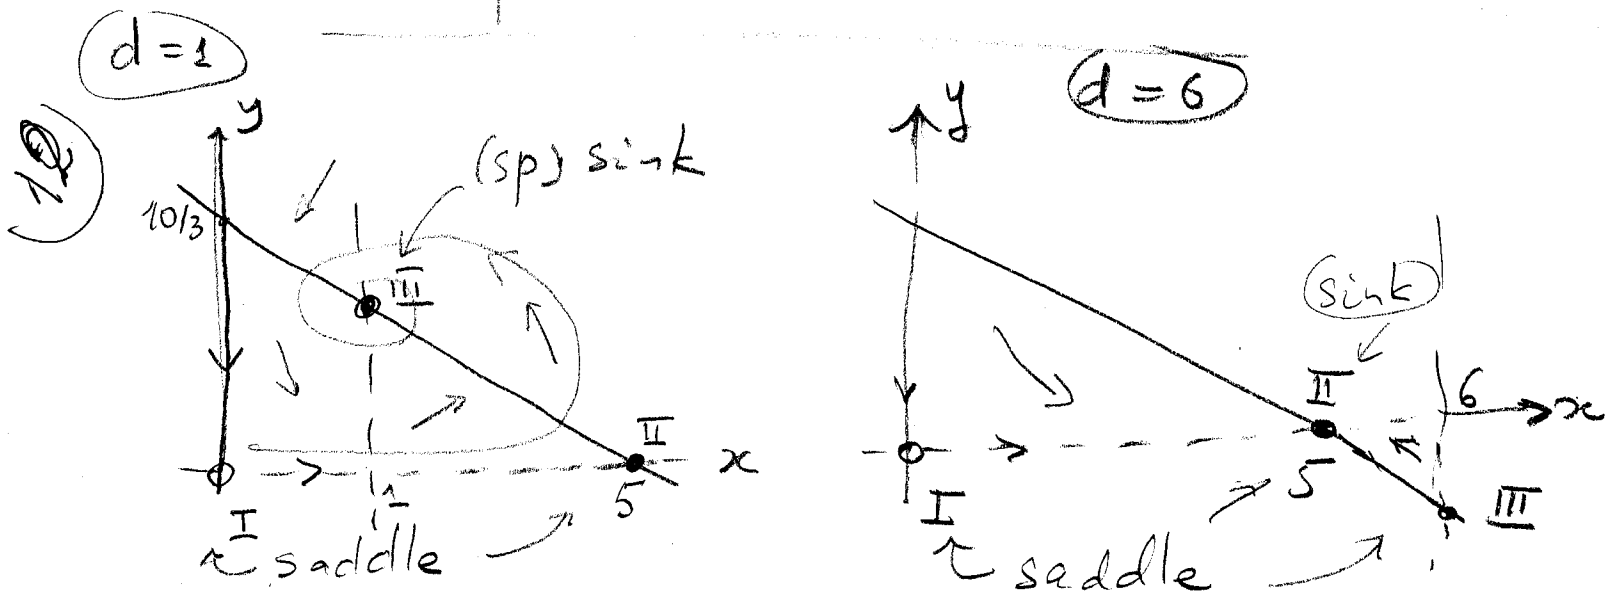 d = 1
y
10/3
(sp) sink
III
II
x
1
5
I
saddle
d = 6
y
sink
II
6
x
5
I
III
saddle